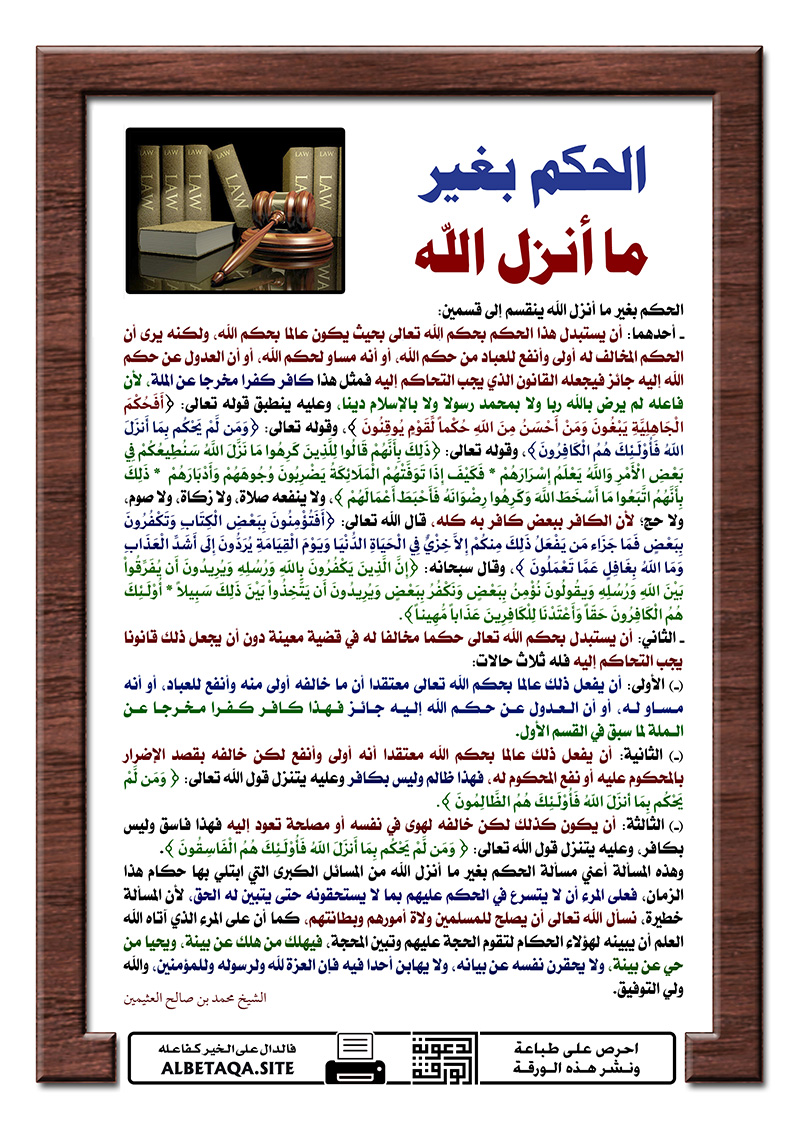 الحكم بغير
ما أنزل الله
LAW LAW LAW LAW LAW LAW
LAW
الحكم بغير ما أنزل الله ينقسم إلى قسمين:
ـ أحدهما: أن يستبدل هذا الحكم بحكم الله تعالى بحيث يكون عالما بحكم الله، ولكنه يرى أن
الحكم المخالف له أولى وأنفع للعباد من حكم الله، أو أنه مساو لحكم الله، أو أن العدول عن حكم
الله إليه جائز فيجعله القانون الذي يجب التحاكم إليه فمثل هذا كافر كفرا مخرجا عن الملة، لأن
فاعله لم يرض بالله ربا ولا بمحمد رسولا ولا بالإسلام دينا، وعليه ينطبق قوله تعالى: ﴿أَفَحُكْمَ
الْجَاهِلِيَّةِ يَبْغُونَ وَمَنْ أَحْسَنُ مِنَ اللهِ حُكْماً لِّقَوْمٍ يُوقِنُونَ ﴾، وقوله تعالى: ﴿وَمَن لَّمْ يَحْكُم بِمَا أَنزَلَ
اللهُ فَأُوْلَـئِكَ هُمُ الْكَافِرُونَ﴾، وقوله تعالى: ﴿ذَلِكَ بِأَنَّهُمْ قَالُوا لِلَّذِينَ كَرِهُوا مَا نَزَّلَ اللهُ سَنُطِيعُكُمْ فِي
بَعْضِ الْأَمْرِ وَاللهُ يَعْلَمُ إِسْرَارَهُمْ * فَكَيْفَ إِذَا تَوَفَّتْهُمُ الْمَلَائِكَةُ يَضْرِبُونَ وُجُوهَهُمْ وَأَدْبَارَهُمْ * ذَلِكَ
بِأَنَّهُمُ اتَّبَعُوا مَا أَسْخَطَ اللهَ وَكَرِهُوا رِضْوَانَهُ فَأَحْبَطَ أَعْمَالَهُمْ ﴾، ولا ينفعه صلاة، ولا زكاة، ولا صوم،
ولا حج؛ لأن الكافر ببعض كافر به كله، قال الله تعالى: ﴿أَفَتُؤْمِنُونَ بِبَعْضِ الْكِتَابِ وَتَكْفُرُونَ
بِبَعْضٍ فَمَا جَزَاء مَن يَفْعَلُ ذَلِكَ مِنكُمْ إِلاَّ خِزْيٌ فِي الْحَيَاةِ الدُّنْيَا وَيَوْمَ الْقِيَامَةِ يُرَدُّونَ إِلَى أَشَدِّ الْعَذَابِ
وَمَا اللهُ بِغَافِلٍ عَمَّا تَعْمَلُونَ ﴾، وقال سبحانه: ﴿إِنَّ الَّذِينَ يَكْفُرُونَ بِاللهِ وَرُسُلِهِ وَيُرِيدُونَ أَن يُفَرِّقُواْ
بَيْنَ اللهِ وَرُسُلِهِ وَيقُولُونَ نُؤْمِنُ بِبَعْضٍ وَنَكْفُرُ بِبَعْضٍ وَيُرِيدُونَ أَن يَتَّخِذُواْ بَيْنَ ذَلِكَ سَبِيلاً * أُوْلَـئِكَ
هُمُ الْكَافِرُونَ حَقّاً وَأَعْتَدْنَا لِلْكَافِرِينَ عَذَاباً مُّهِيناً﴾.
ـ الثاني: أن يستبدل بحكم الله تعالى حكما مخالفا له في قضية معينة دون أن يجعل ذلك قانونا
يجب التحاكم إليه فله ثلاث حالات:
(ـ) الأولى: أن يفعل ذلك عالما بحكم الله تعالى معتقدا أن ما خالفه أولى منه وأنفع للعباد، أو أنه
مساو له، أو أن العدول عن حكم الله إليه جائز فهذا كافر كفرا مخرجا عن
الملة لما سبق في القسم الأول.
(ـ) الثانية: أن يفعل ذلك عالما بحكم الله معتقدا أنه أولى وأنفع لكن خالفه بقصد الإضرار
بالمحكوم عليه أو نفع المحكوم له، فهذا ظالم وليس بكافر وعليه يتنزل قول الله تعالى: ﴿ وَمَن لَّمْ
يَحْكُم بِمَا أنزَلَ اللهُ فَأُوْلَـئِكَ هُمُ الظَّالِمُونَ ﴾.
(ـ) الثالثة: أن يكون كذلك لكن خالفه لهوى في نفسه أو مصلحة تعود إليه فهذا فاسق وليس
بكافر، وعليه يتنزل قول الله تعالى: ﴿ وَمَن لَّمْ يَحْكُم بِمَا أَنزَلَ اللهُ فَأُوْلَـئِكَ هُمُ الْفَاسِقُونَ ﴾.
وهذه المسألة أعني مسألة الحكم بغير ما أنزل الله من المسائل الكبرى التي ابتلي بها حكام هذا
الزمان، فعلى المرء أن لا يتسرع في الحكم عليهم بما لا يستحقونه حتى يتبين له الحق، لأن المسألة
خطيرة، نسأل الله تعالى أن يصلح للمسلمين ولاة أمورهم وبطانتهم، كما أن على المرء الذي آتاه الله
العلم أن يبينه لهؤلاء الحكام لتقوم الحجة عليهم وتبين المحجة، فيهلك من هلك عن بينة، ويحيا من
حي عن بينة، ولا يحقرن نفسه عن بيانه، ولا يهابن أحدا فيه فإن العزة لله ولرسوله وللمؤمنين، والله
ولي التوفيق.
الشيخ محمد بن صالح العثيمين
احرص على طباعة
ونشر هذه الورقة
الدعوية
الورقة
فالدال على الخير كفاعله
ALBETAQA.SITE